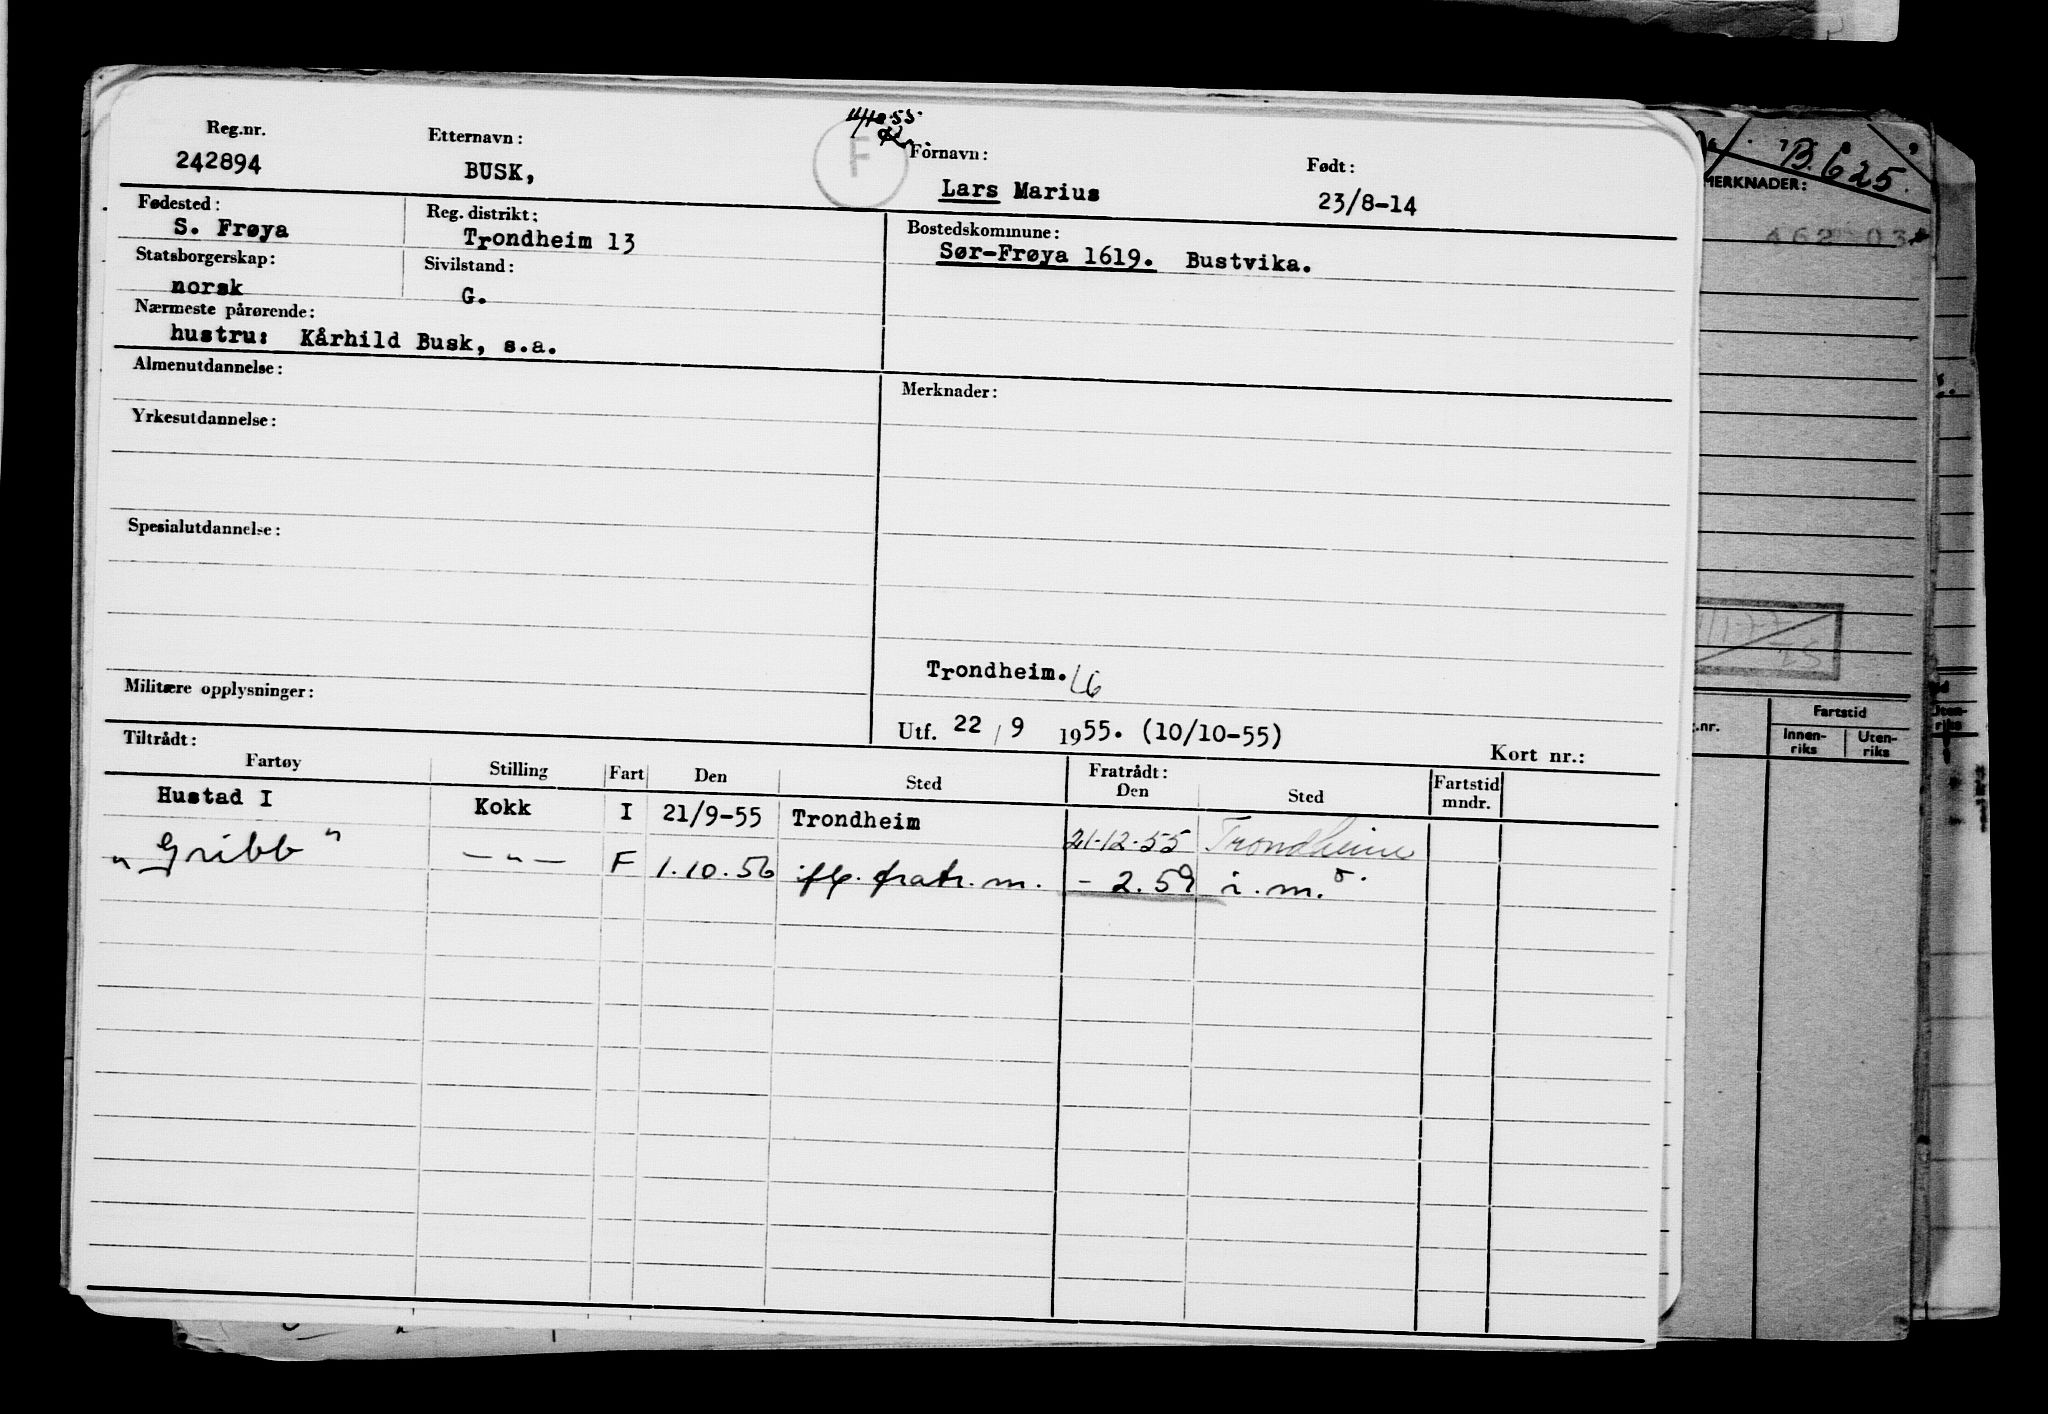 Reg.nr. Etternavn: 11/10-55 Fornavn: Født:
242894 BUSK, F Lars Marius 23/8-14
Fødested: Reg. distrikt: Bostedskommune:
S. Frøya Trondheim 13 Sør-Frøya 1619. Bustvika.
Statsborgerskap: Sivilstand:
norsk G.
Nærmeste pårørende:
hustru: Kårhild Busk, s.a.
Almenutdannelse: Merknader:
Yrkesutdannelse:
Spesialutdannelse:
Trondheim. LG
Militære opplysninger:
Utf. 22 / 9 1955. (10/10-55) Kort nr.:
Tiltrådt: Fratrådt:
Fartøy Stilling Fart Den Sted Den Sted Fartstid mndr.
Hustad I Kokk I 21/9-55 Trondheim 21-12-55 Trondheim
"Gribb" — " — F 1.10.56 ifl. fratr. m. - 2.59 i. m.
B. 625.
MERKNADER:
Fartstid
Innen-riks Uten-riks